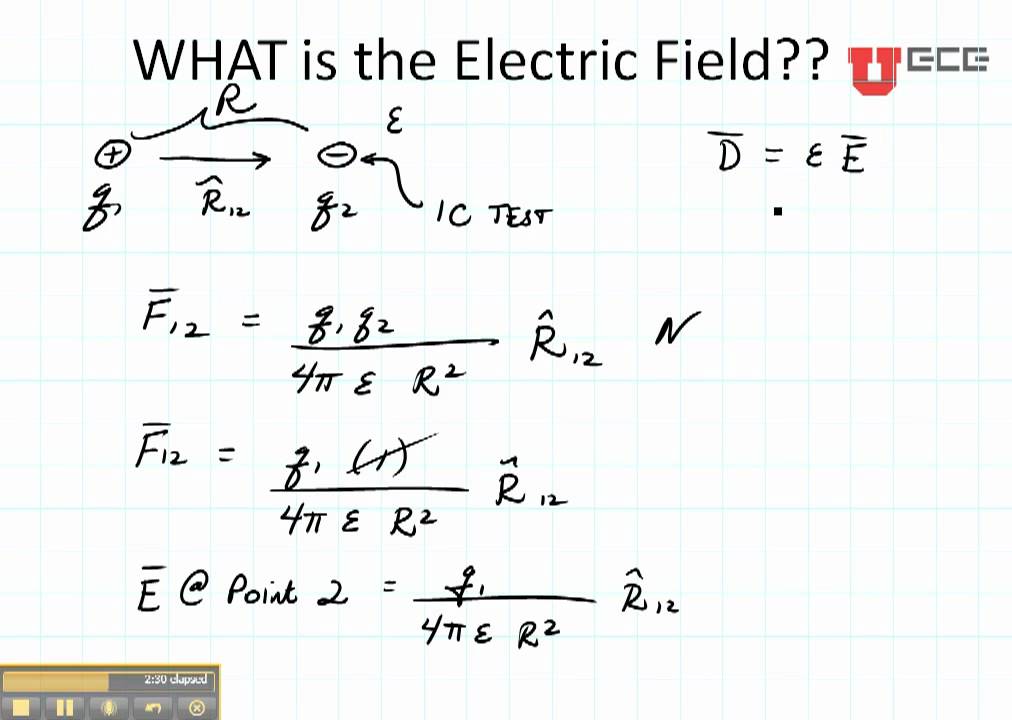 WHAT is the Electric Field??
U ECE
R
ε
⊕ → ⊖
q₁ R̂₁₂ q₂ 1C TEST
D̅ = ε E̅
F̅₁₂ = q₁q₂ / 4π ε R² R̂₁₂ N
F̅₁₂ = q₁ (1) / 4π ε R² R̂₁₂
E̅ @ Point 2 = q₁ / 4π ε R² R̂₁₂
2:30 elapsed